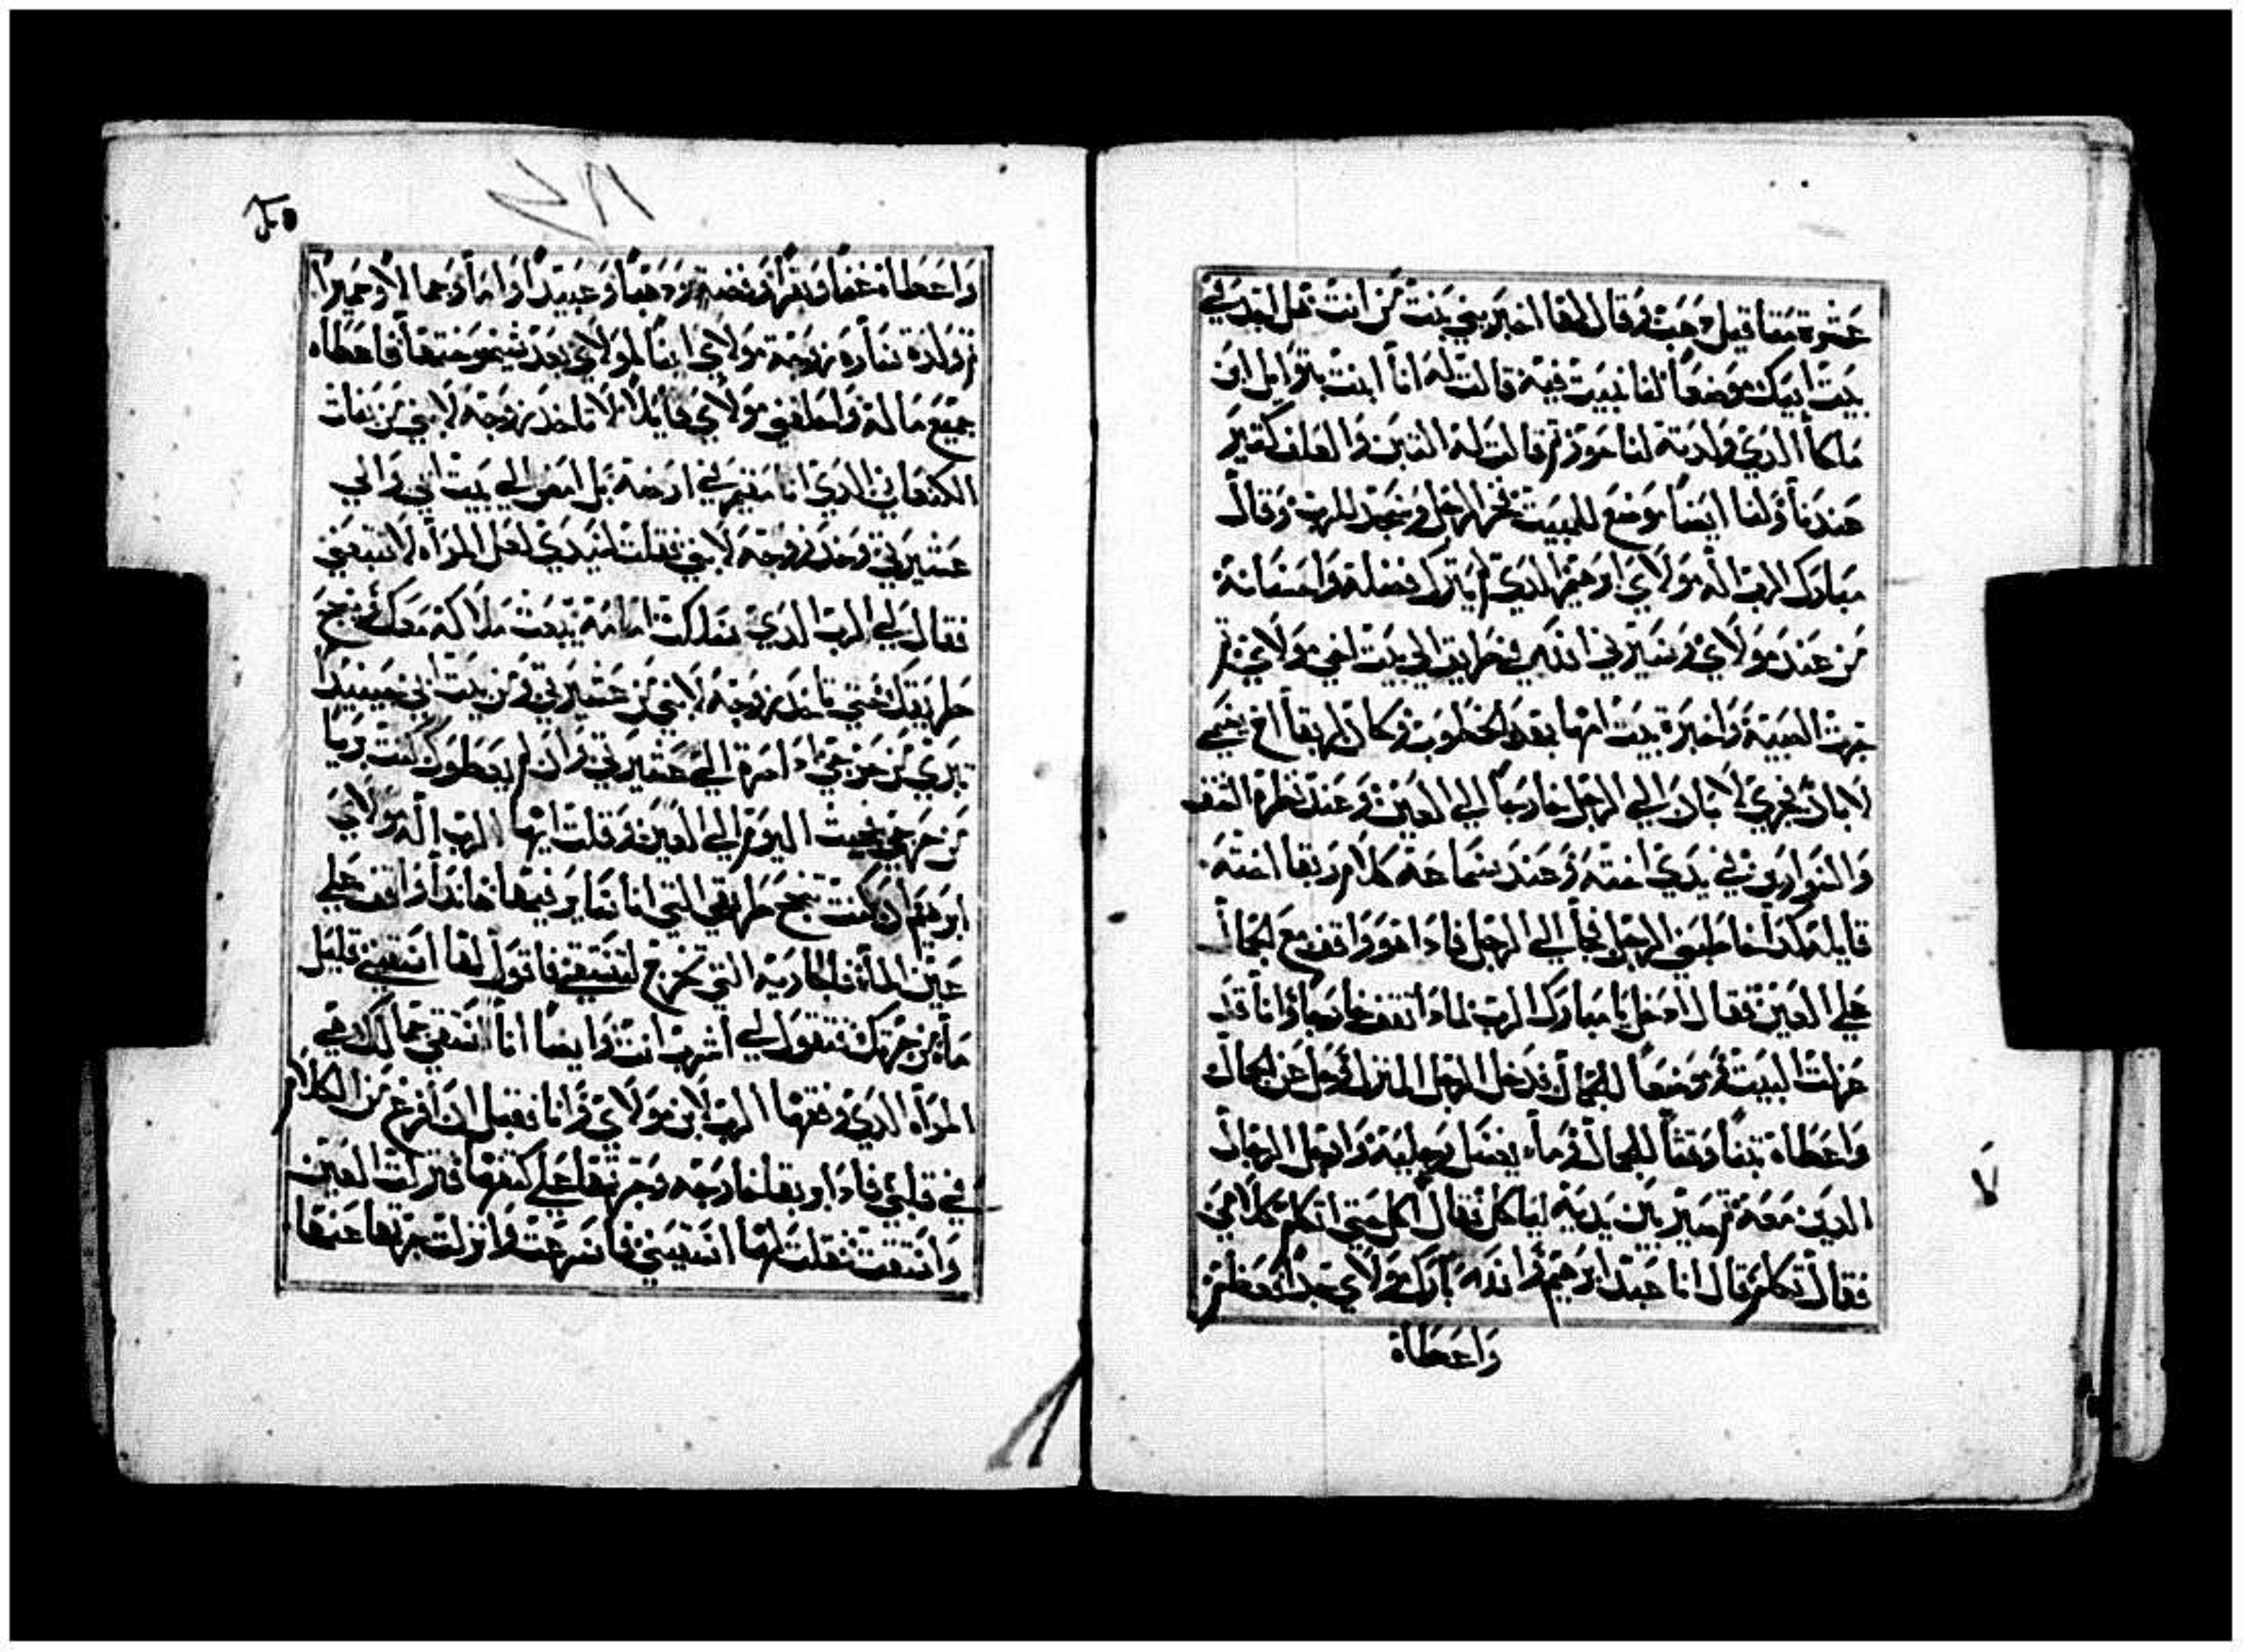 عشرة مثاقيل دهب وقال لها اخبريني بنت من انت هل نجد في
بيت ابيك موضعاً لنا نبيت فيه قالت له انا ابنت بتوايل ابن
ملكا الدي ولدته لناحور ثم قالت له التبن والعلف كثير
عندنا ولنا ايضاً موضع للمبيت فخر الرجل وسجد للرب وقال
مبارك الرب اله مولاي ابرهيم الدي لم يترك فضله واحسانه
من عند مولاي وسيرني الله في طريق الي بيت اخي مولاي ثم
جرت الصبية واخبرة بيت امها بهده الخطوب وكان لربقا اخ يسمي
لابان فجري لابان الي الرجل خارجاً الي العين وعند نظره الشنف
والسوارين في يدي اخته وعند سماعه كلام ربقا اخته
قايله هكدا خاطبني الرجل فجأ الي الرجل فادا هو واقف مع الجمال
علي العين فقال ادخل يا مبارك الرب لمادا تقف خارجاً وانا قد
عزلت البيت وموضعاً للجمال فدخل الرجل المنزل وحل عن الجمال
واعطاه تبناً وقتاً للجمال وماء يغسل رجليه وارجل الرجال
الدين معه ثم صير بين يديه لياكل فقال لا اكل حتي اتكلم كلامي
فقال تكلم قال انا عبد ابرهيم والله بارك مولاي جداً فعظم
واعطاه
واعطاه غنماً وبقراً وفضه ودهباً وعبيداً واماً وجمالاً وحميراً
ثم ولدة ساره زوجة مولاي ابناً لمولاي بعد شيخوختها فاعطاه
جميع ماله واحلفني مولاي قايلاً لا تاخد زوجه لابني من بنات
الكنعاني الدي انا مقيم في ارضه بل امض الي بيت ابي والي
عشيرتي وخد زوجه لابني فقلت لسيدي لعل المراه لا تتبعني
فقال لي الرب الدي سلكت امامه يبعث ملاكه معك وينجح
طريقك حتي تاخد زوجه لابني من عشيرتي ومن بيت ابي حينيداً
تبري من حرجي ادا مرة الي عشيرتي وان لم يعطوك كنت برياً
من حرجي فجيت اليوم الي العين وقلت ايها الرب اله مولاي
ابرهيم ان كنت تنجح طريقي التي انا ساير فيها هاندا واقف علي
عين الماً فالجاريه التي تخرج لتستقي فاقول لها اسقيني قليل
ماً من جرتك فتقول لي اشرب انت وايضاً انا استقي جمالك هي
المراه الدي وفقها الرب لابن مولاي وانا فقبل ان افرغ من الكلام
في قلبي فادا ربقا خارجه وجرتها علي كتفها فنزلت العين
واستقت فقلت لها اسقيني فاسرعت وانزلت جرتها عنها